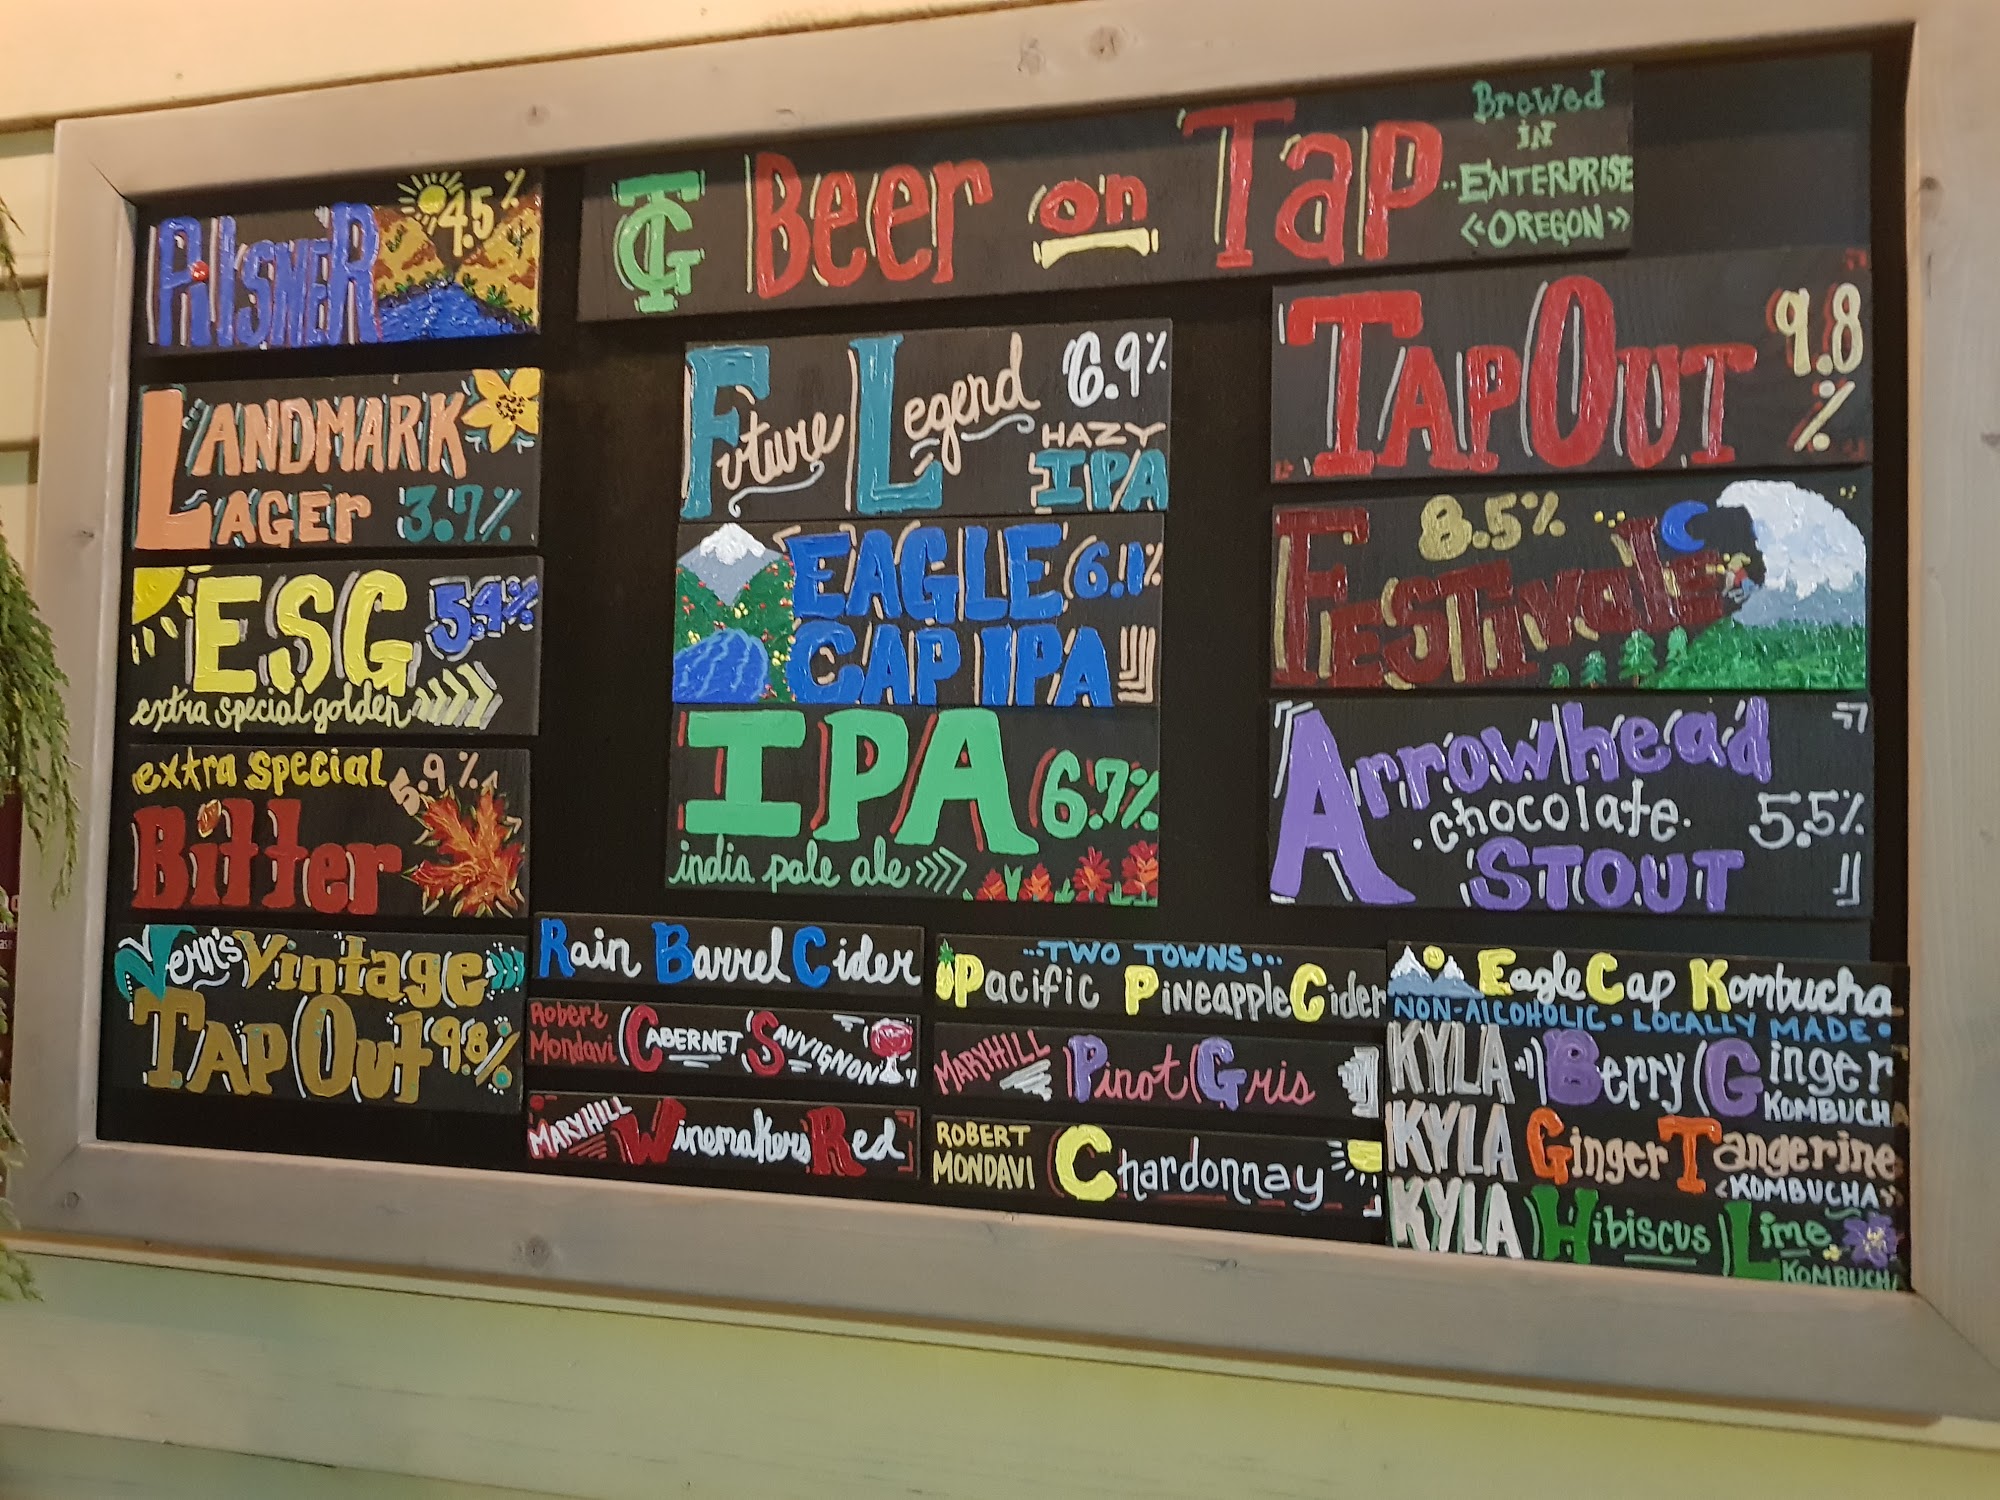 TG Beer on Tap
Brewed
in
Enterprise
<<Oregon>>
Pilsner 4.5%
Landmark
Lager 3.7%
ESG
extra special golden
extra special 5.9%
Bitter
Vern's Vintage
Tap Out 9.8%
Future Legend 6.9%
Hazy
IPA
Eagle 6.1%
Cap IPA
IPA 6.7%
india pale ale
TapOut 9.8
%
8.5%
Festivale
Arrowhead
chocolate 5.5%
Stout
Rain Barrel Cider
Robert
Mondavi Cabernet Sauvignon
Maryhill Winemakers Red
...Two Towns...
Pacific Pineapple Cider
Maryhill Pinot Gris
Robert
Mondavi Chardonnay
Eagle Cap Kombucha
Non-Alcoholic • Locally Made •
KYLA Berry Ginger
Kombucha
KYLA Ginger Tangerine
<Kombucha>
KYLA Hibiscus Lime
Kombucha